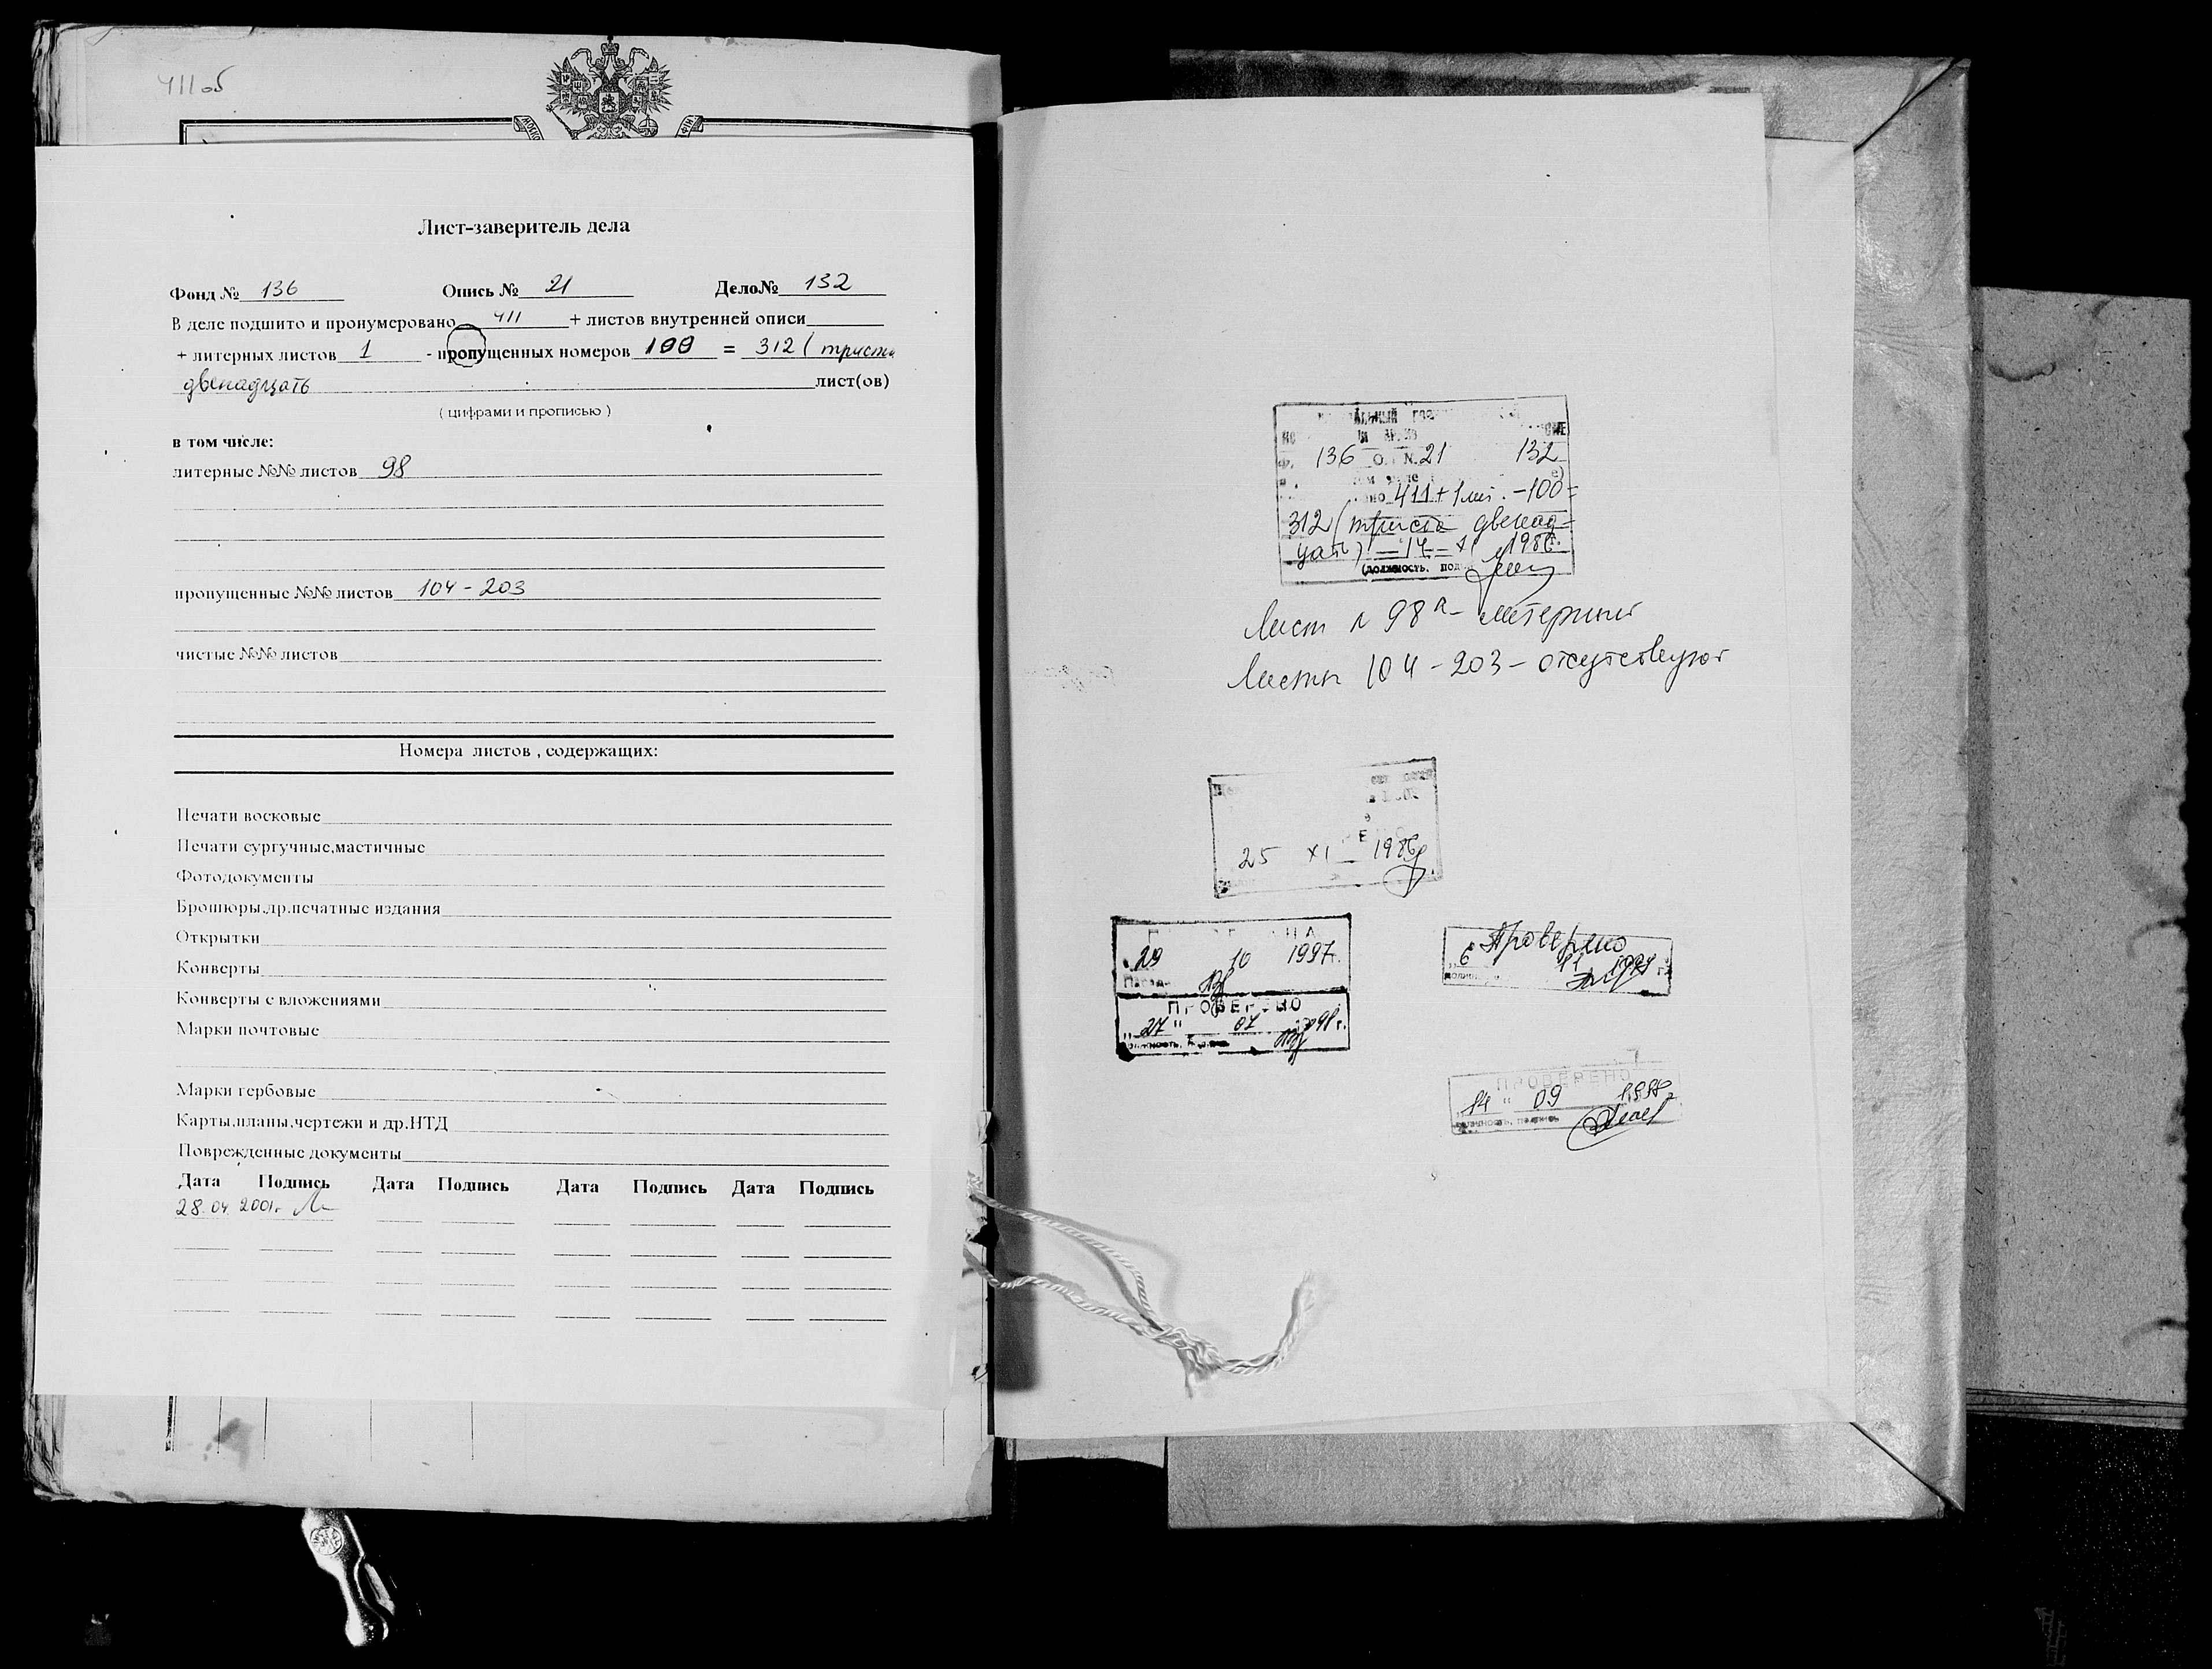 411об
Лист-заверитель дела
Фонд № 136 Опись № 21 Дело№ 132
В деле подшито и пронумеровано 411 + листов внутренней описи
+ литерных листов 1 - пропущенных номеров 100 = 312 ( триста
двенадцать лист(ов)
( цифрами и прописью )
в том числе:
литерные №№ листов 98
пропущенные №№ листов 104 - 203
чистые №№ листов
Номера листов , содержащих:
Печати восковые
Печати сургучные,мастичные
Фотодокументы
Брошюры,др.печатные издания
Открытки
Конверты
Конверты с вложениями
Марки почтовые
Марки гербовые
Карты,планы,чертежи и др.НТД
Поврежденные документы
Дата Подпись Дата Подпись Дата Подпись Дата Подпись
28.04 2001г
136 О. N. 21 132
411 + 1 лит. - 100 =
312 (триста двенад-
цать) 14 XI
(должность, под
Лист N 98а - литерный
Листы 104 - 203 - отсутствуют
25 XI
29 10 1997г.
ПРОВЕРЕНО
„ 27 " 07 1998г.
Проверено
6 11
ПРОВЕРЕНО
„ 14 " 09
должность, подпись